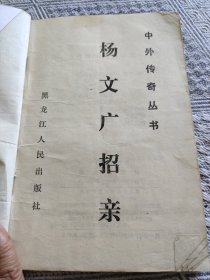 中外传奇丛书
杨文广招亲
黑龙江人民出版社